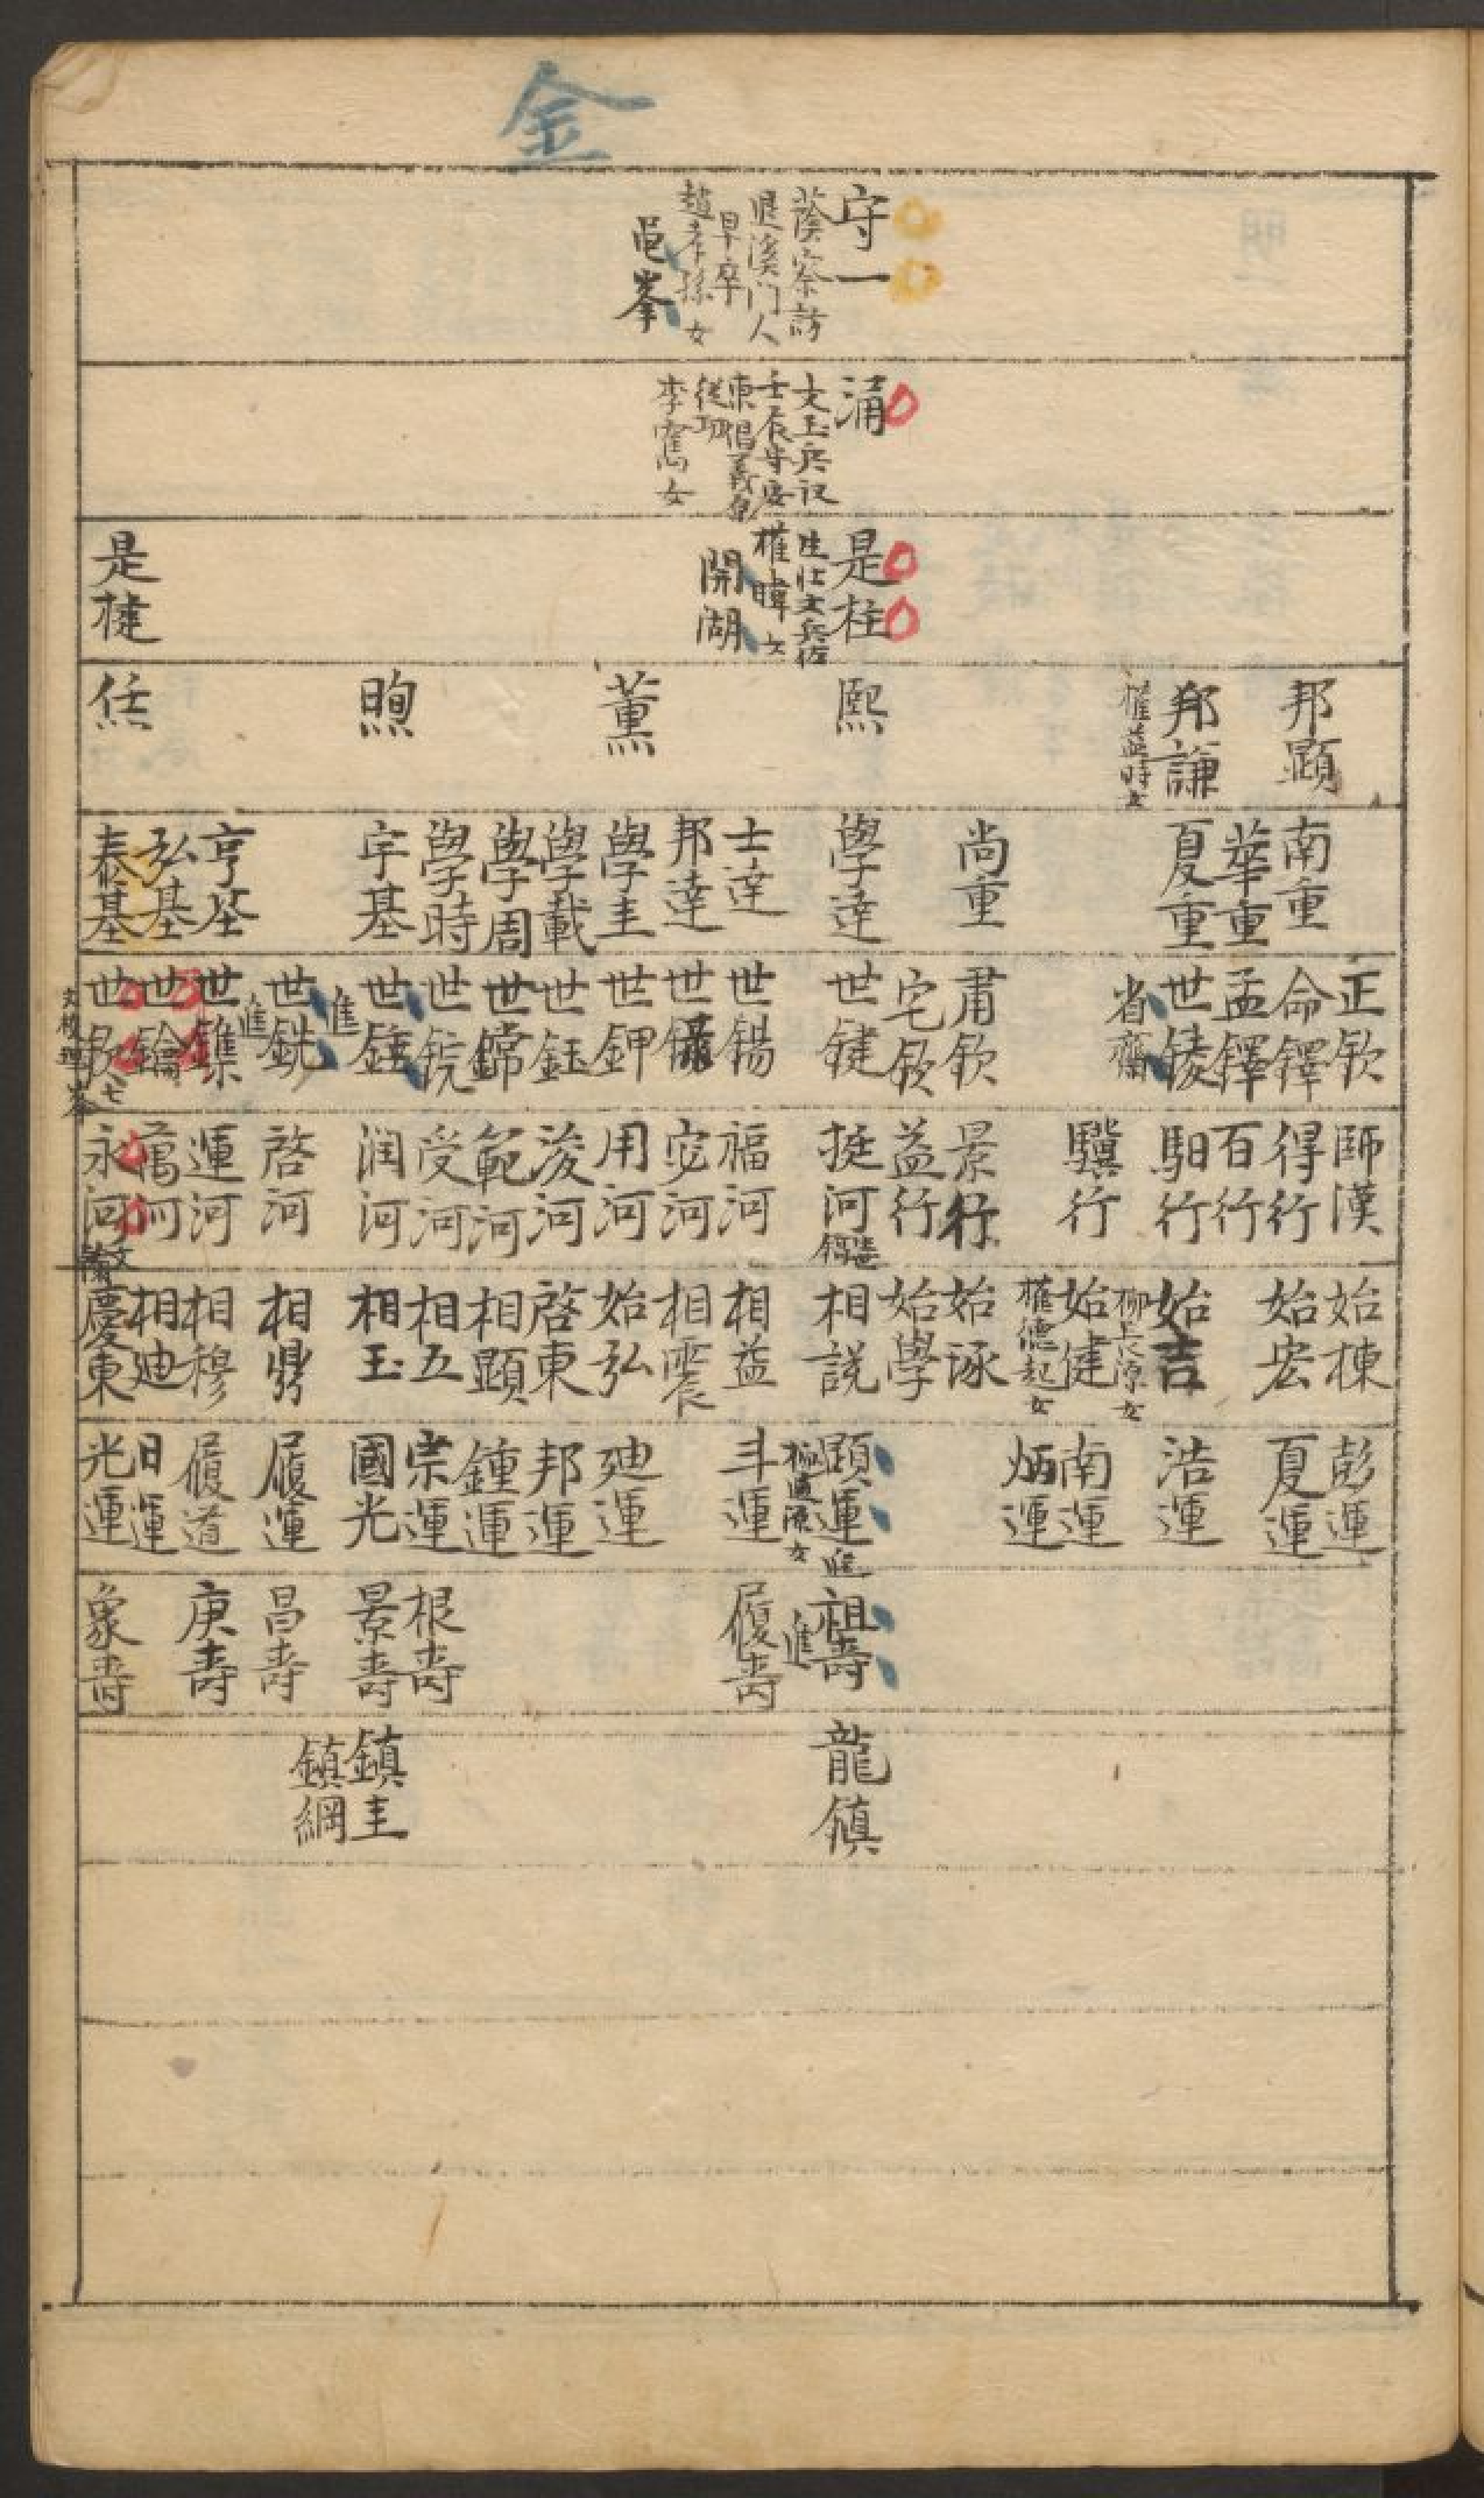 金
守一
蔭察訪
退溪門人
早卒
趙孝孫女
龜峯
涌
文玉兵初
壬辰守安
東倡義自
從功
李寯女
是柱
生仕文兵佐
權暐女
開湖
是楗
邦顯
邦謙
權益時女
熙
薰
煦
烍
南重
華重
夏重
尚重
學達
士達
邦達
學圭
學載
學周
學時
宇基
亨基
弘基
泰基
正欽
命鐸
孟鐸
世錂
省齋
肅欽
宅欽
世鍵
世錫
世鑷
世鉀
世鈺
世鏛
世鋎
世鍾
進
世銑
進
世鏶
世鑰
世欽
文校理
七峯
師漢
得行
百行
馹行
驥行
景行
益行
挺河
福河
㝎河
用河
浚河
範河
受河
潤河
啓河
運河
萬河
永河
文
始棟
始宏
始吉
柳長源女
始健
權德起女
始詠
始學
相說
相益
相震
始弘
啓東
相顯
相五
相玉
相鼎
相穆
相迪
慶東
彭運
夏運
浩運
南運
炳運
顯運
柳道源女
斗運
迪運
邦運
鍾運
宗運
國光
履運
履道
日運
光運
祖壽
進
履壽
根壽
景壽
昌壽
庚壽
象壽
龍鎮
鎮圭
鎮綱